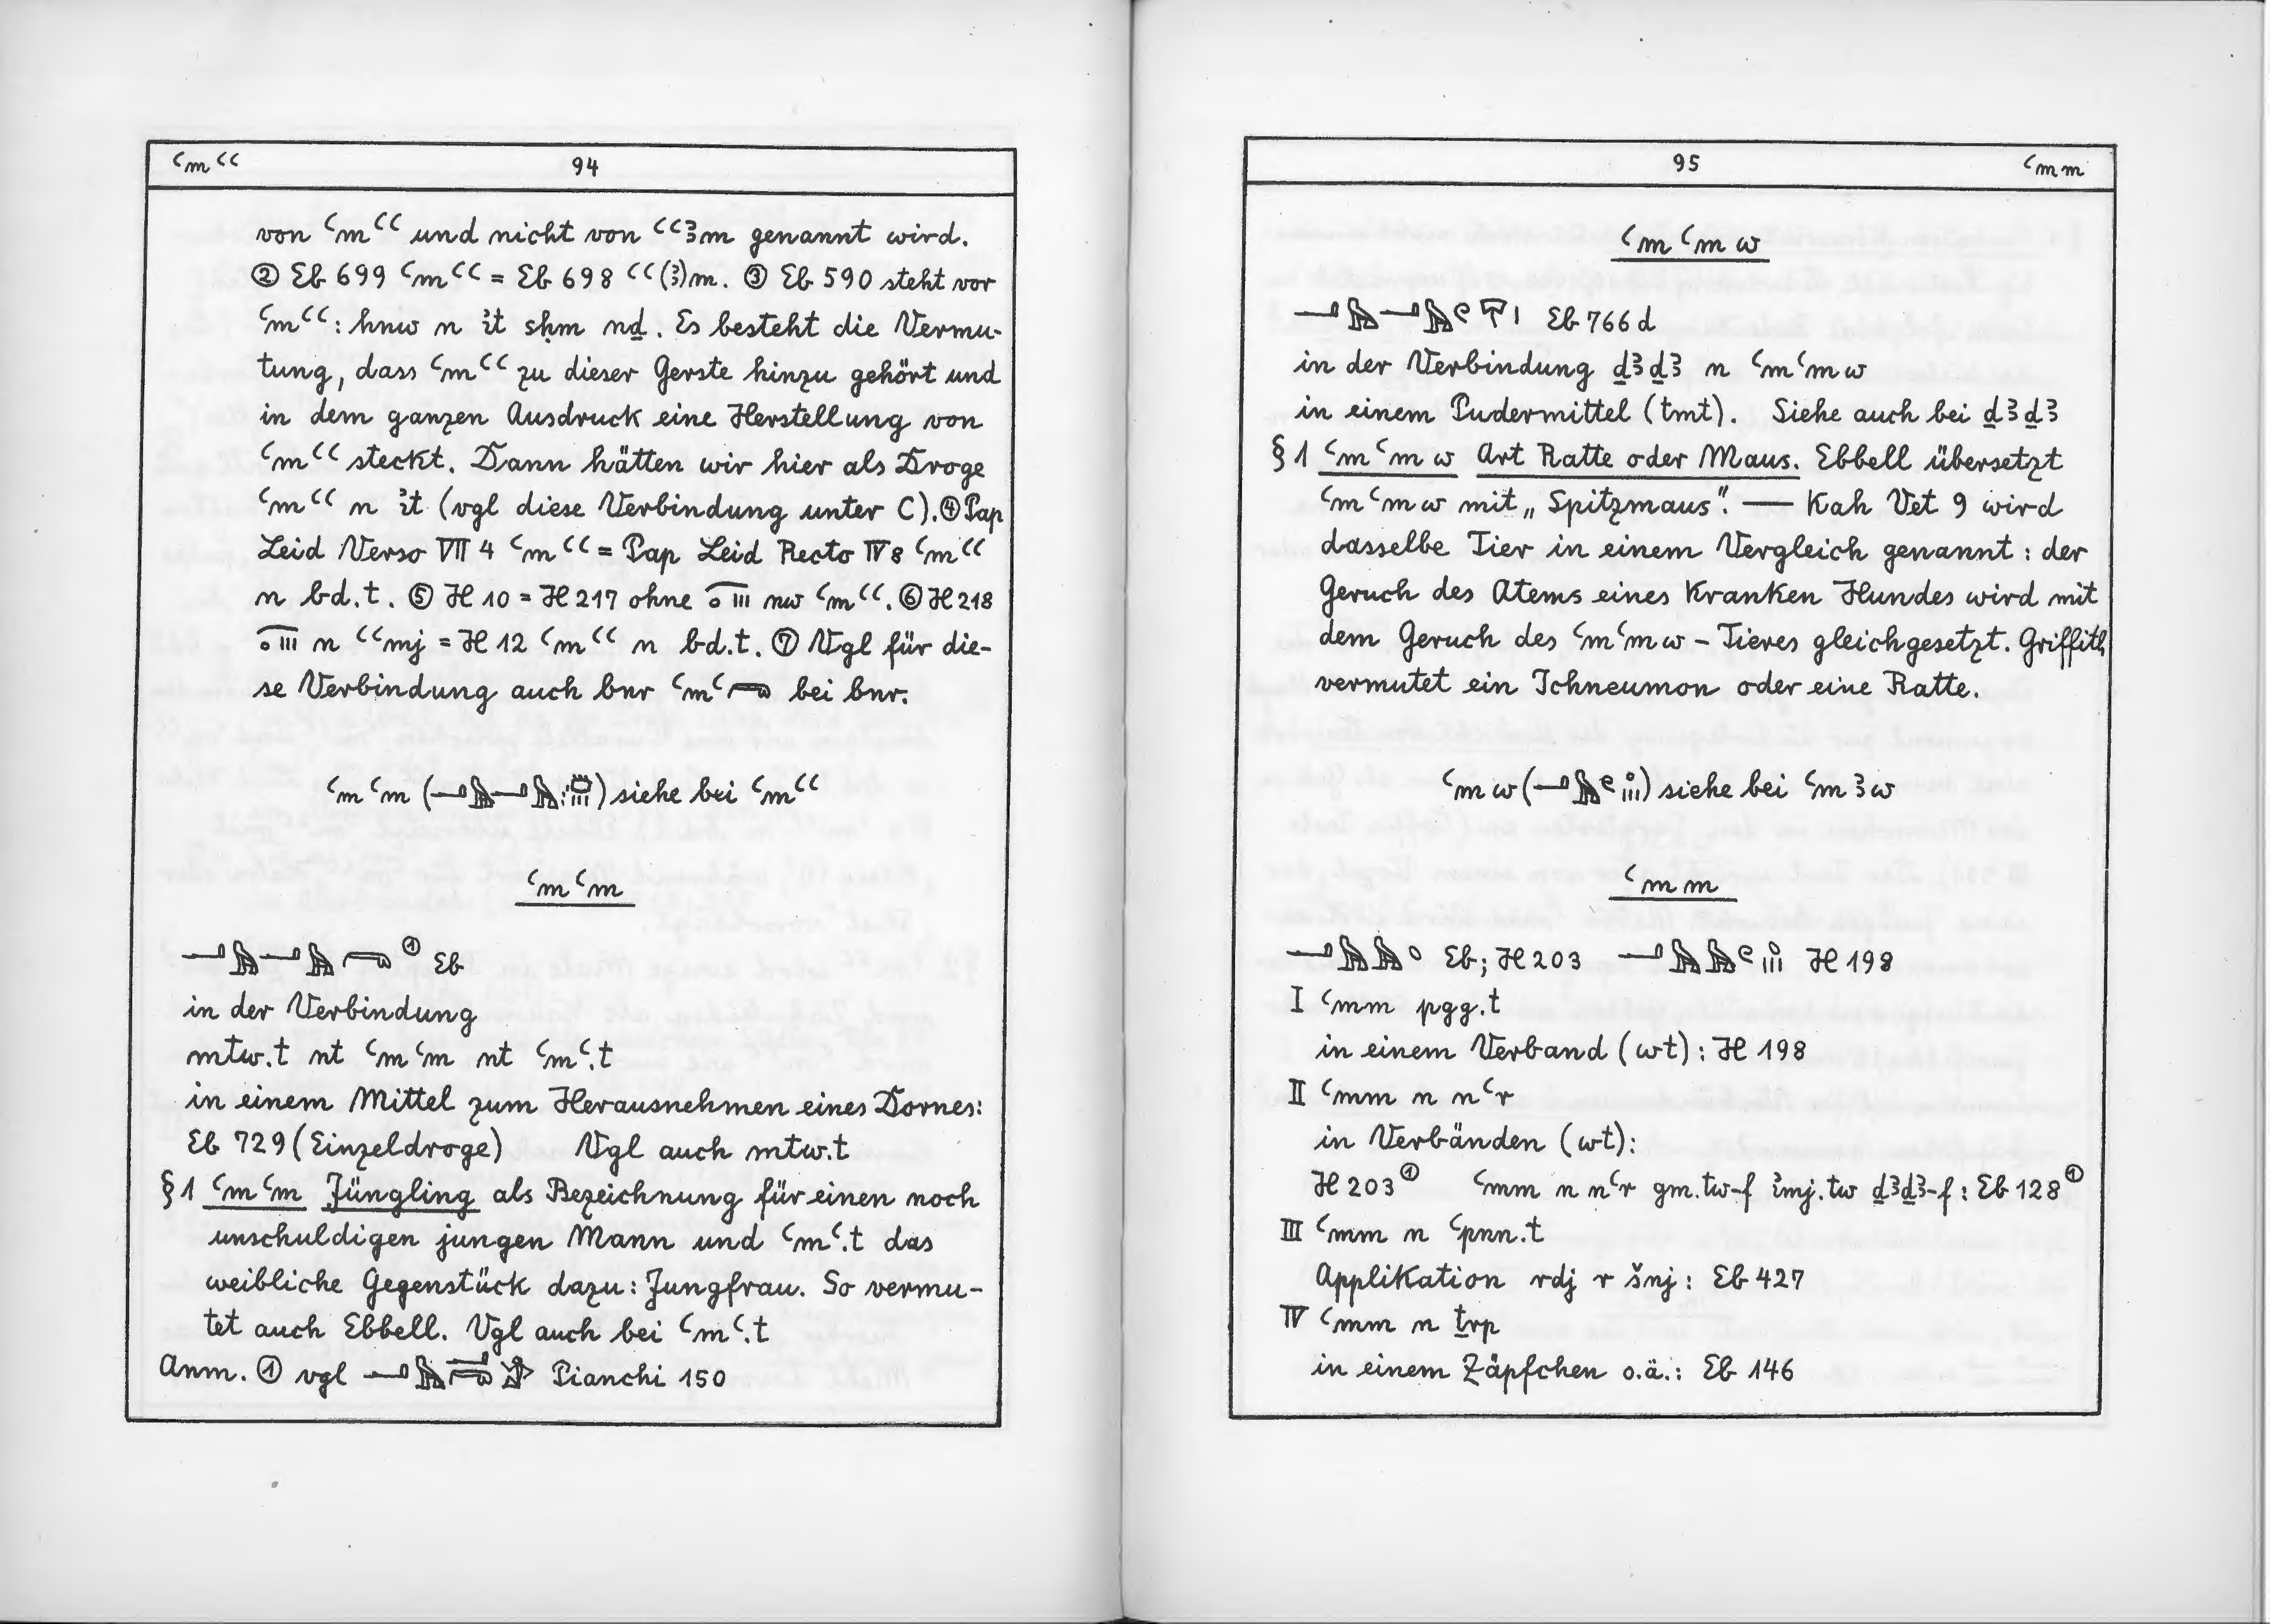 ꜥmꜥꜥ 94
von ꜥmꜥꜥ und nicht von ꜥꜥꜣm genannt wird.
② Eb 699 ꜥmꜥꜥ = Eb 698 ꜥꜥ(ꜣ)m. ③ Eb 590 steht vor
ꜥmꜥꜥ: hnw n ꞽt sḥm nḏ. Es besteht die Vermu-
tung, dass ꜥmꜥꜥ zu dieser Gerste hinzu gehört und
in dem ganzen Ausdruck eine Herstellung von
ꜥmꜥꜥ steckt. Dann hätten wir hier als Droge
ꜥmꜥꜥ n ꞽt (vgl diese Verbindung unter C). ④ Pap
Leid Verso VII 4 ꜥmꜥꜥ = Pap Leid Recto IV 8 ꜥmꜥꜥ
n bd.t. ⑤ H 10 = H 217 ohne nw ꜥmꜥꜥ. ⑥ H 218
n ꜥꜥmj = H 12 ꜥmꜥꜥ n bd.t. ⑦ Vgl für die-
se Verbindung auch bnr ꜥmꜥ𓂺 bei bnr.
ꜥmꜥm (𓂝𓅓𓂝𓅓) siehe bei ꜥmꜥꜥ
ꜥmꜥm
𓂝𓅓𓂝𓅓𓂺 ① Eb
in der Verbindung
mtw.t nt ꜥmꜥm nt ꜥmꜥ.t
in einem Mittel zum Herausnehmen eines Dornes:
Eb 729 (Einzeldroge) Vgl auch mtw.t
§ 1 ꜥmꜥm Jüngling als Bezeichnung für einen noch
unschuldigen jungen Mann und ꜥmꜥ.t das
weibliche Gegenstück dazu: Jungfrau. So vermu-
tet auch Ebbell. Vgl auch bei ꜥmꜥ.t
Anm. ① vgl 𓂝𓅓𓂝𓂺 Pianchi 150
95 ꜥmm
ꜥmꜥmw
𓂝𓅓𓂝𓅓𓏲𓄛𓏤 Eb 766 d
in der Verbindung ḏꜣḏꜣ n ꜥmꜥmw
in einem Pudermittel (tmt). Siehe auch bei ḏꜣḏꜣ
§ 1 ꜥmꜥmw Art Ratte oder Maus. Ebbell übersetzt
ꜥmꜥmw mit „Spitzmaus". — Kah Vet 9 wird
dasselbe Tier in einem Vergleich genannt: der
Geruch des Atems eines kranken Hundes wird mit
dem Geruch des ꜥmꜥmw-Tieres gleichgesetzt. Griffith
vermutet ein Ichneumon oder eine Ratte.
ꜥmw (𓂝𓅓𓏲𓈒𓏥) siehe bei ꜥmꜣw
ꜥmm
𓂝𓅓𓅓𓈒 Eb; H 203 𓂝𓅓𓅓𓏲𓈒𓏥 H 198
I ꜥmm pgg.t
in einem Verband (wt): H 198
II ꜥmm n nꜥr
in Verbänden (wt):
H 203 ① ꜥmm n nꜥr gm.tw-f ꞽmj.tw ḏꜣḏꜣ-f: Eb 128 ①
III ꜥmm n ꜥpnn.t
Applikation rdj r šnj: Eb 427
IV ꜥmm n ṯrp
in einem Zäpfchen o.ä.: Eb 146